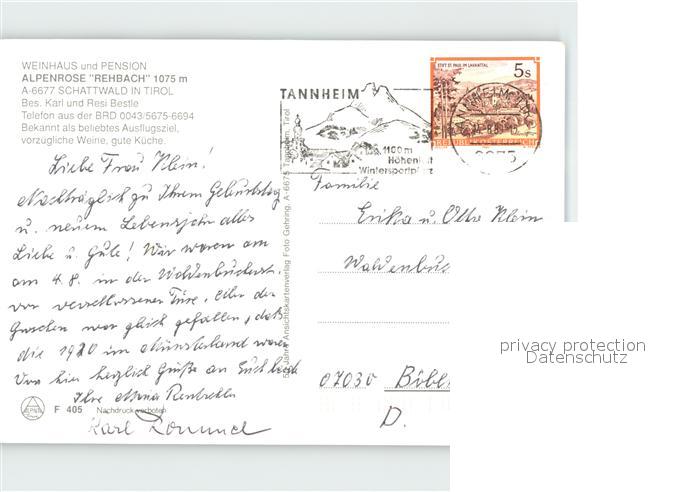 WEINHAUS und PENSION
ALPENROSE "REHBACH" 1075 m
A-6677 SCHATTWALD IN TIROL
Bes. Karl und Resi Bestle
Telefon aus der BRD 0043/5675-6694
Bekannt als beliebtes Ausflugsziel,
vorzügliche Weine, gute Küche.
Liebe Frau Klein!
Nachträglich zu Ihrem Geburtstag
u. neuem Lebensjahr alles
Liebe u. Gute! Wir waren am
am 4.8. in der
vor verschlossener Türe.
war gleich gefallen, daß
die 1920 im Münsterland waren
Von hier herzlich Grüße an Euch beide
Ihre
Karl
F 405 Nachdruck verboten
Jahre Ansichtskartenverlag Foto Gehring, A-6675 Tannheim, Tirol
TANNHEIM
1100 m
Höhenluft
Wintersportplatz
STIFT ST. PAUL IM LAVANTTAL
5 S
Familie
Erika u. Otto Klein
Waldenbuc
07030 Böbl
D.
privacy protection
Datenschutz